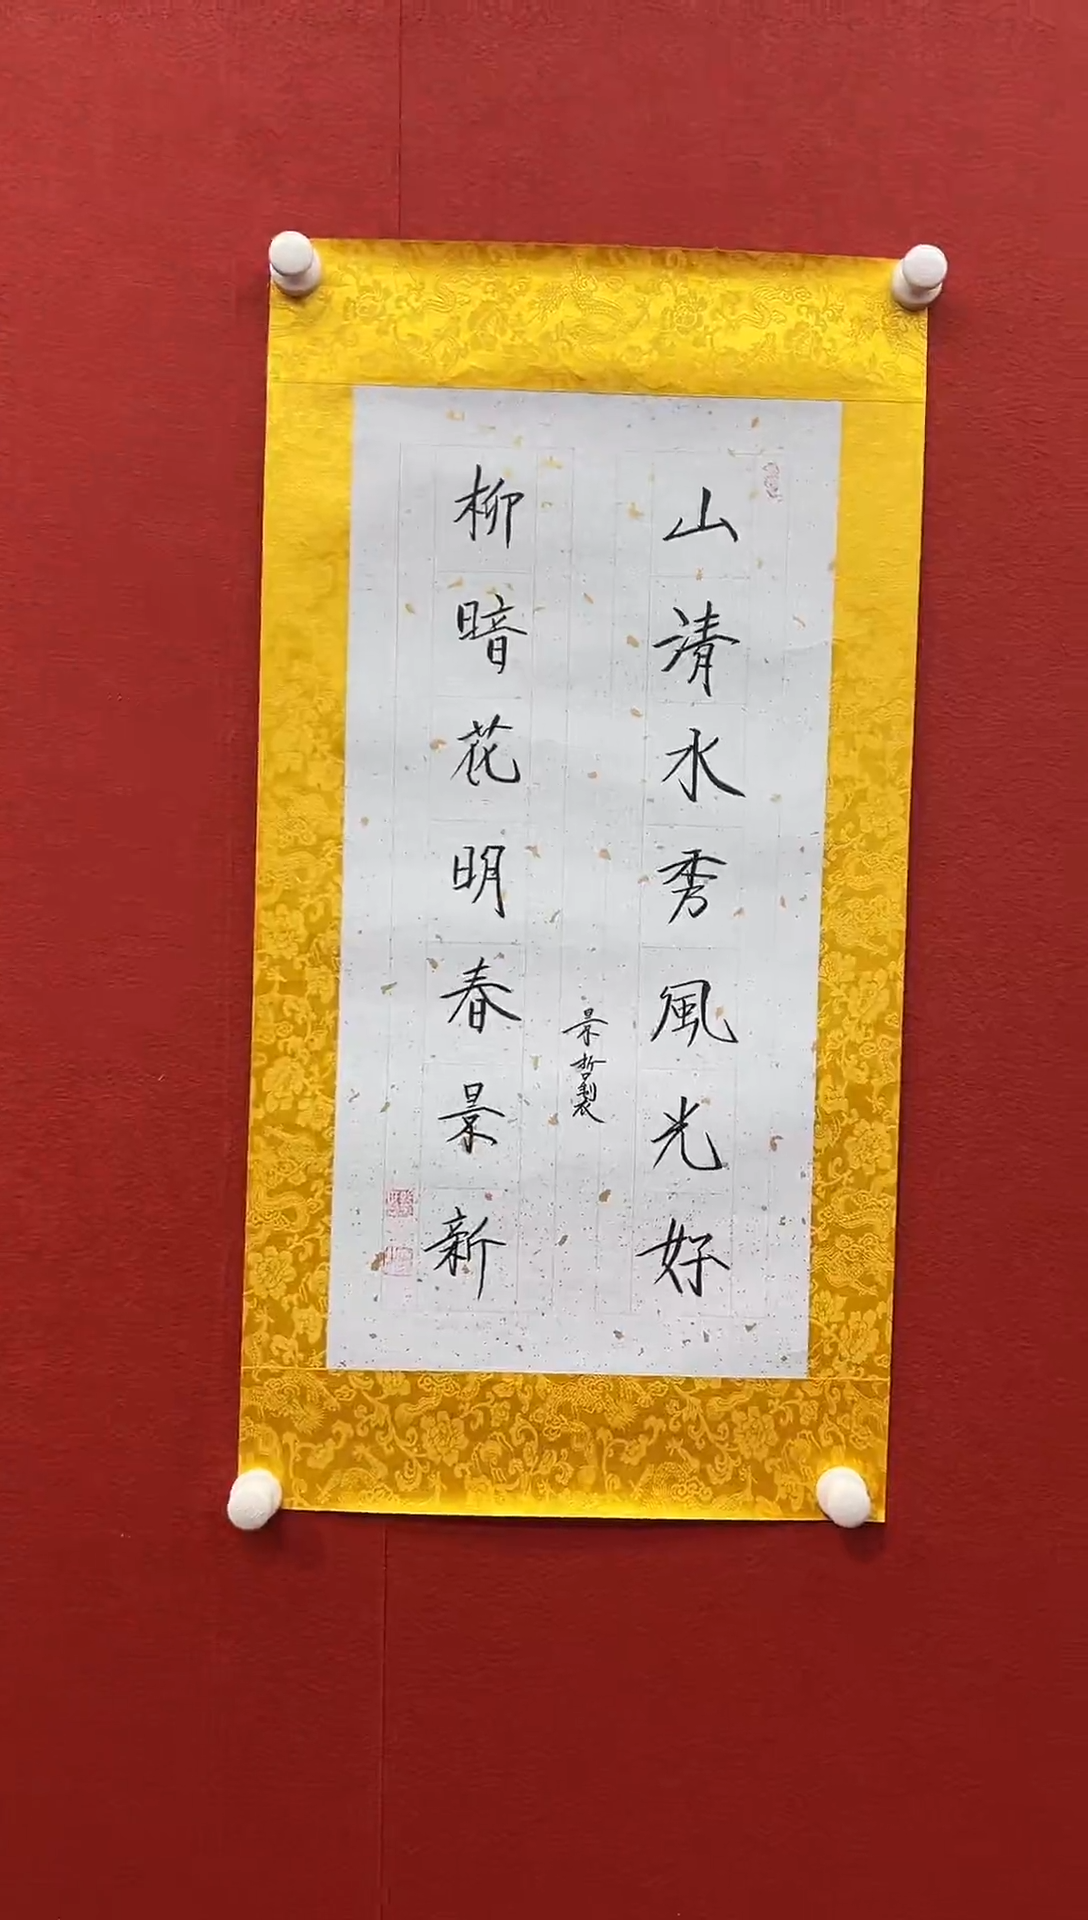 山清水秀風光好
景哲製
柳暗花明春景新